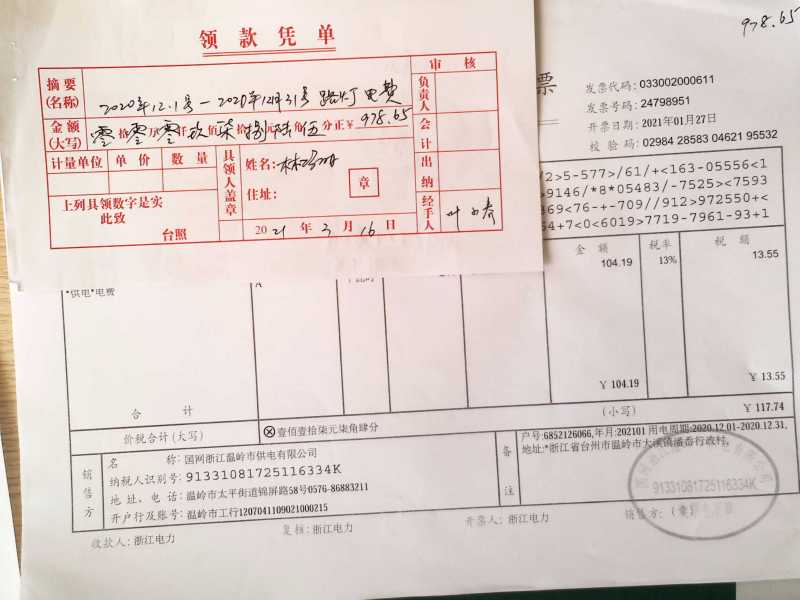 978.65
领款凭单
摘要(名称) 2020年12.1号-2020年12月31号 路灯电费
审核
负责人
金额(大写) 零拾零万零仟玖佰柒拾捌元陆角伍分正¥978.65
会计
计量单位 单价 数量
具领人盖章
姓名:
住址:
章
出纳
上列具领数字是实
此致
台照
2021年3月16日
经手人 叶
票
发票代码: 033002000611
发票号码: 24798951
开票日期: 2021年01月27日
校验码: 02984 28583 04621 95532
/2>5-577>/61/+<163-05556<1
>9146/*8*05483/-7525><7593
369<76-+-709//912>972550+<
54+7<0<6019>7719-7961-93+1
金额 税率 税额
*供电*电费 104.19 13% 13.55
合计 ¥104.19 ¥13.55
价税合计(大写) ⊗壹佰壹拾柒元柒角肆分 (小写) ¥117.74
销售方
名称: 国网浙江温岭市供电有限公司
纳税人识别号: 91331081725116334K
地址、电话: 温岭市太平街道锦屏路58号0576-86883211
开户行及账号: 温岭市工行1207041109021000215
备注
户号:6852126066,年月:202101 用电周期:2020.12.01-2020.12.31,
地址:*浙江省台州市温岭市大溪镇潘岙行政村,
91331081725116334K
收款人: 浙江电力 复核: 浙江电力 开票人: 浙江电力 销售方: (章)